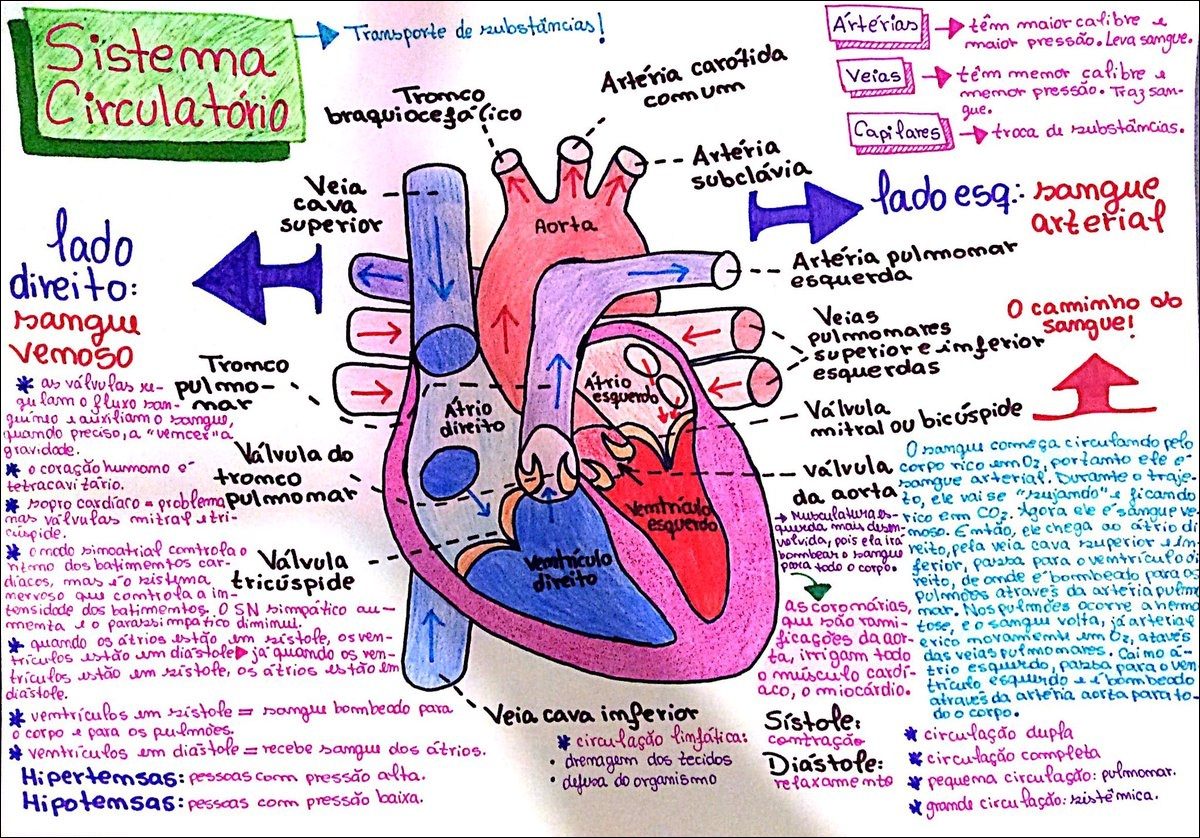 Sistema
Circulatório
Transporte de substâncias!
Artérias
têm maior calibre e
maior pressão. Leva sangue.
Veias
têm menor calibre e
menor pressão. Traz san-
gue.
Capilares
troca de substâncias.
Tronco
braquiocefálico
Artéria carótida
comum
Artéria
subclávia
Veia
cava
superior
Aorta
lado esq.: sangue
arterial
lado
direito:
sangue
venoso
Artéria pulmonar
esquerda
Veias
pulmonares
superior e inferior
esquerdas
O caminho do
sangue!
Tronco
pulmo-
nar
Átrio
direito
Átrio
esquerdo
Válvula
mitral ou bicúspide
Válvula do
tronco
pulmonar
válvula
da aorta
Ventrículo
esquerdo
Ventrículo
direito
Válvula
tricúspide
Veia cava inferior
* as válvulas re-
gulam o fluxo san-
guíneo e auxiliam o sangue,
quando preciso, a "vencer" a
gravidade.
* o coração humano é
tetracavitário.
* sopro cardíaco = problema
nas válvulas mitral e tri-
cúspide.
* o nodo sinoatrial controla o
ritmo dos batimentos car-
díacos, mas é o sistema
nervoso que controla a in-
tensidade dos batimentos. O SN simpático au-
menta e o parassimpático diminui.
* quando os átrios estão em sístole, os ven-
trículos estão em diástole já quando os ven-
trículos estão em sístole, os átrios estão em
diástole.
* ventrículos em sístole = sangue bombeado para
o corpo e para os pulmões.
* ventrículos em diástole = recebe sangue dos átrios.
Hipertensas: pessoas com pressão alta.
Hipotensas: pessoas com pressão baixa.
* circulação linfática:
• drenagem dos tecidos
• defesa do organismo
→ musculatura es-
querda mais desen-
volvida, pois ela irá
bombear o sangue
para todo o corpo.
as coronárias,
que são rami-
ficações da aor-
ta, irrigam todo
o músculo cardí-
aco, o miocárdio.
Sístole:
contração
Diástole:
relaxamento
O sangue começa circulando pelo
corpo rico em O₂, portanto ele é
sangue arterial. Durante o traje-
to, ele vai se "sujando" e ficando
rico em CO₂. Agora ele é sangue ve-
noso. Então, ele chega ao átrio di-
reito, pela veia cava superior e in-
ferior, passa para o ventrículo di-
reito, de onde é bombeado para os
pulmões através da arteria pulmo-
nar. Nos pulmões ocorre a hema-
tose, e o sangue volta, já arterial
e rico novamente em O₂, atavés
das veias pulmonares. Cai no á-
trio esquerdo, passa para o ven-
trículo esquerdo e é bombeado
através da artéria aorta para to-
do o corpo.
* circulação dupla
* circulação completa
* pequena circulação: pulmonar.
* grande circulação: sistêmica.